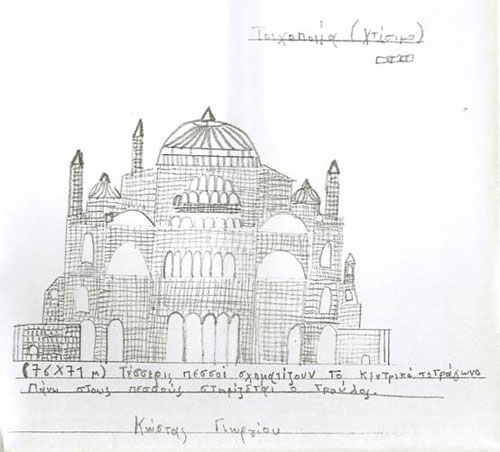 Τοιχοποιία (Χτίσιμο)
(76Χ71 μ) Τέσσερις πεσσοί σχηματίζουν το κεντρικό τετράγωνο
Πάνω στους πεσσούς στηρίζεται ο τρούλος.
Κώστας Γεωργίου